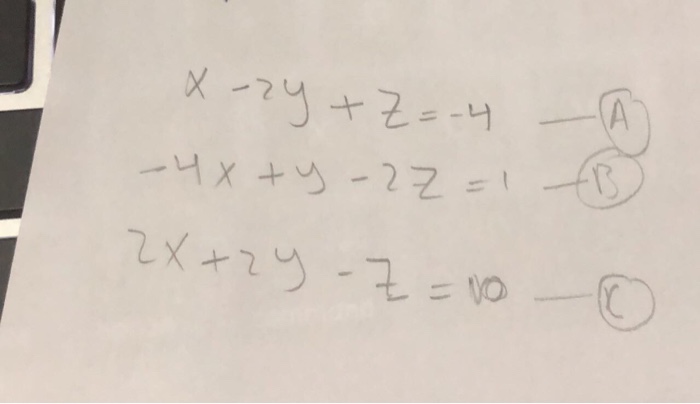 x - 2y + z = -4 — A
-4x + y - 2z = 1 — B
2x + 2y - z = 10 — C